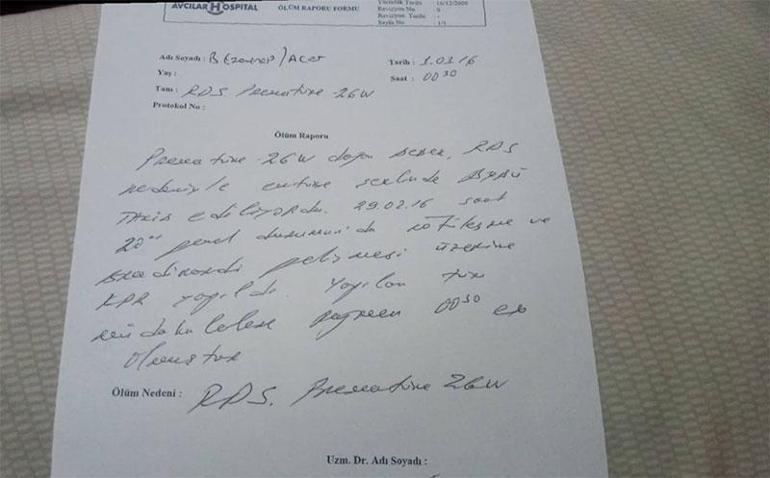 AVCILAR HOSPITAL
ÖLÜM RAPORU FORMU
Yürürlük Tarihi 16/12/2009
Revizyon No 0
Revizyon Tarihi -
Sayfa No 1/1
Adı Soyadı : B (Zeynep) / Acet
Tarih : 1.03.16
Yaş :
Saat : 00 30
Tanı : RDS. Prematüre -26W
Protokol No :
Ölüm Raporu
Prematüre -26W doğan bebek, RDS
nedeniyle entübe şekilde
takip ediliyordu. 29.02.16 saat
20 genel durumunda kötüleşme ve
bradikardi gelişmesi üzerine
KPR yapıldı. Yapılan tüm
müdahalelere rağmen 00 30 ex
olmuştur
Ölüm Nedeni : RDS. Prematüre 26W
Uzm. Dr. Adı Soyadı :